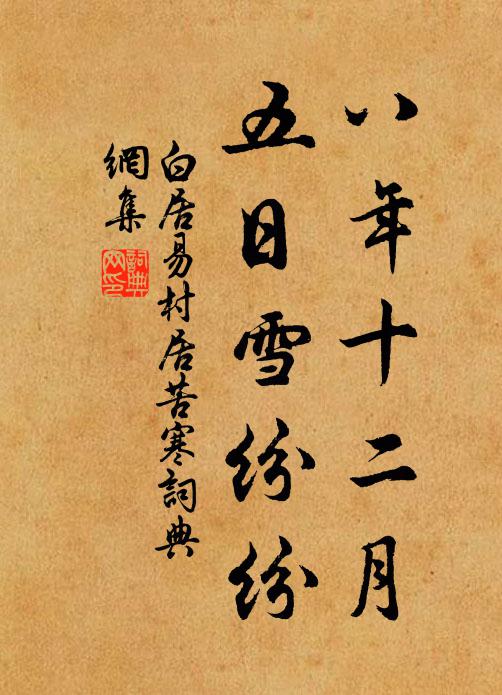 八年十二月
五日雪纷纷
白居易村居苦寒詞典
網集
詞典
网印